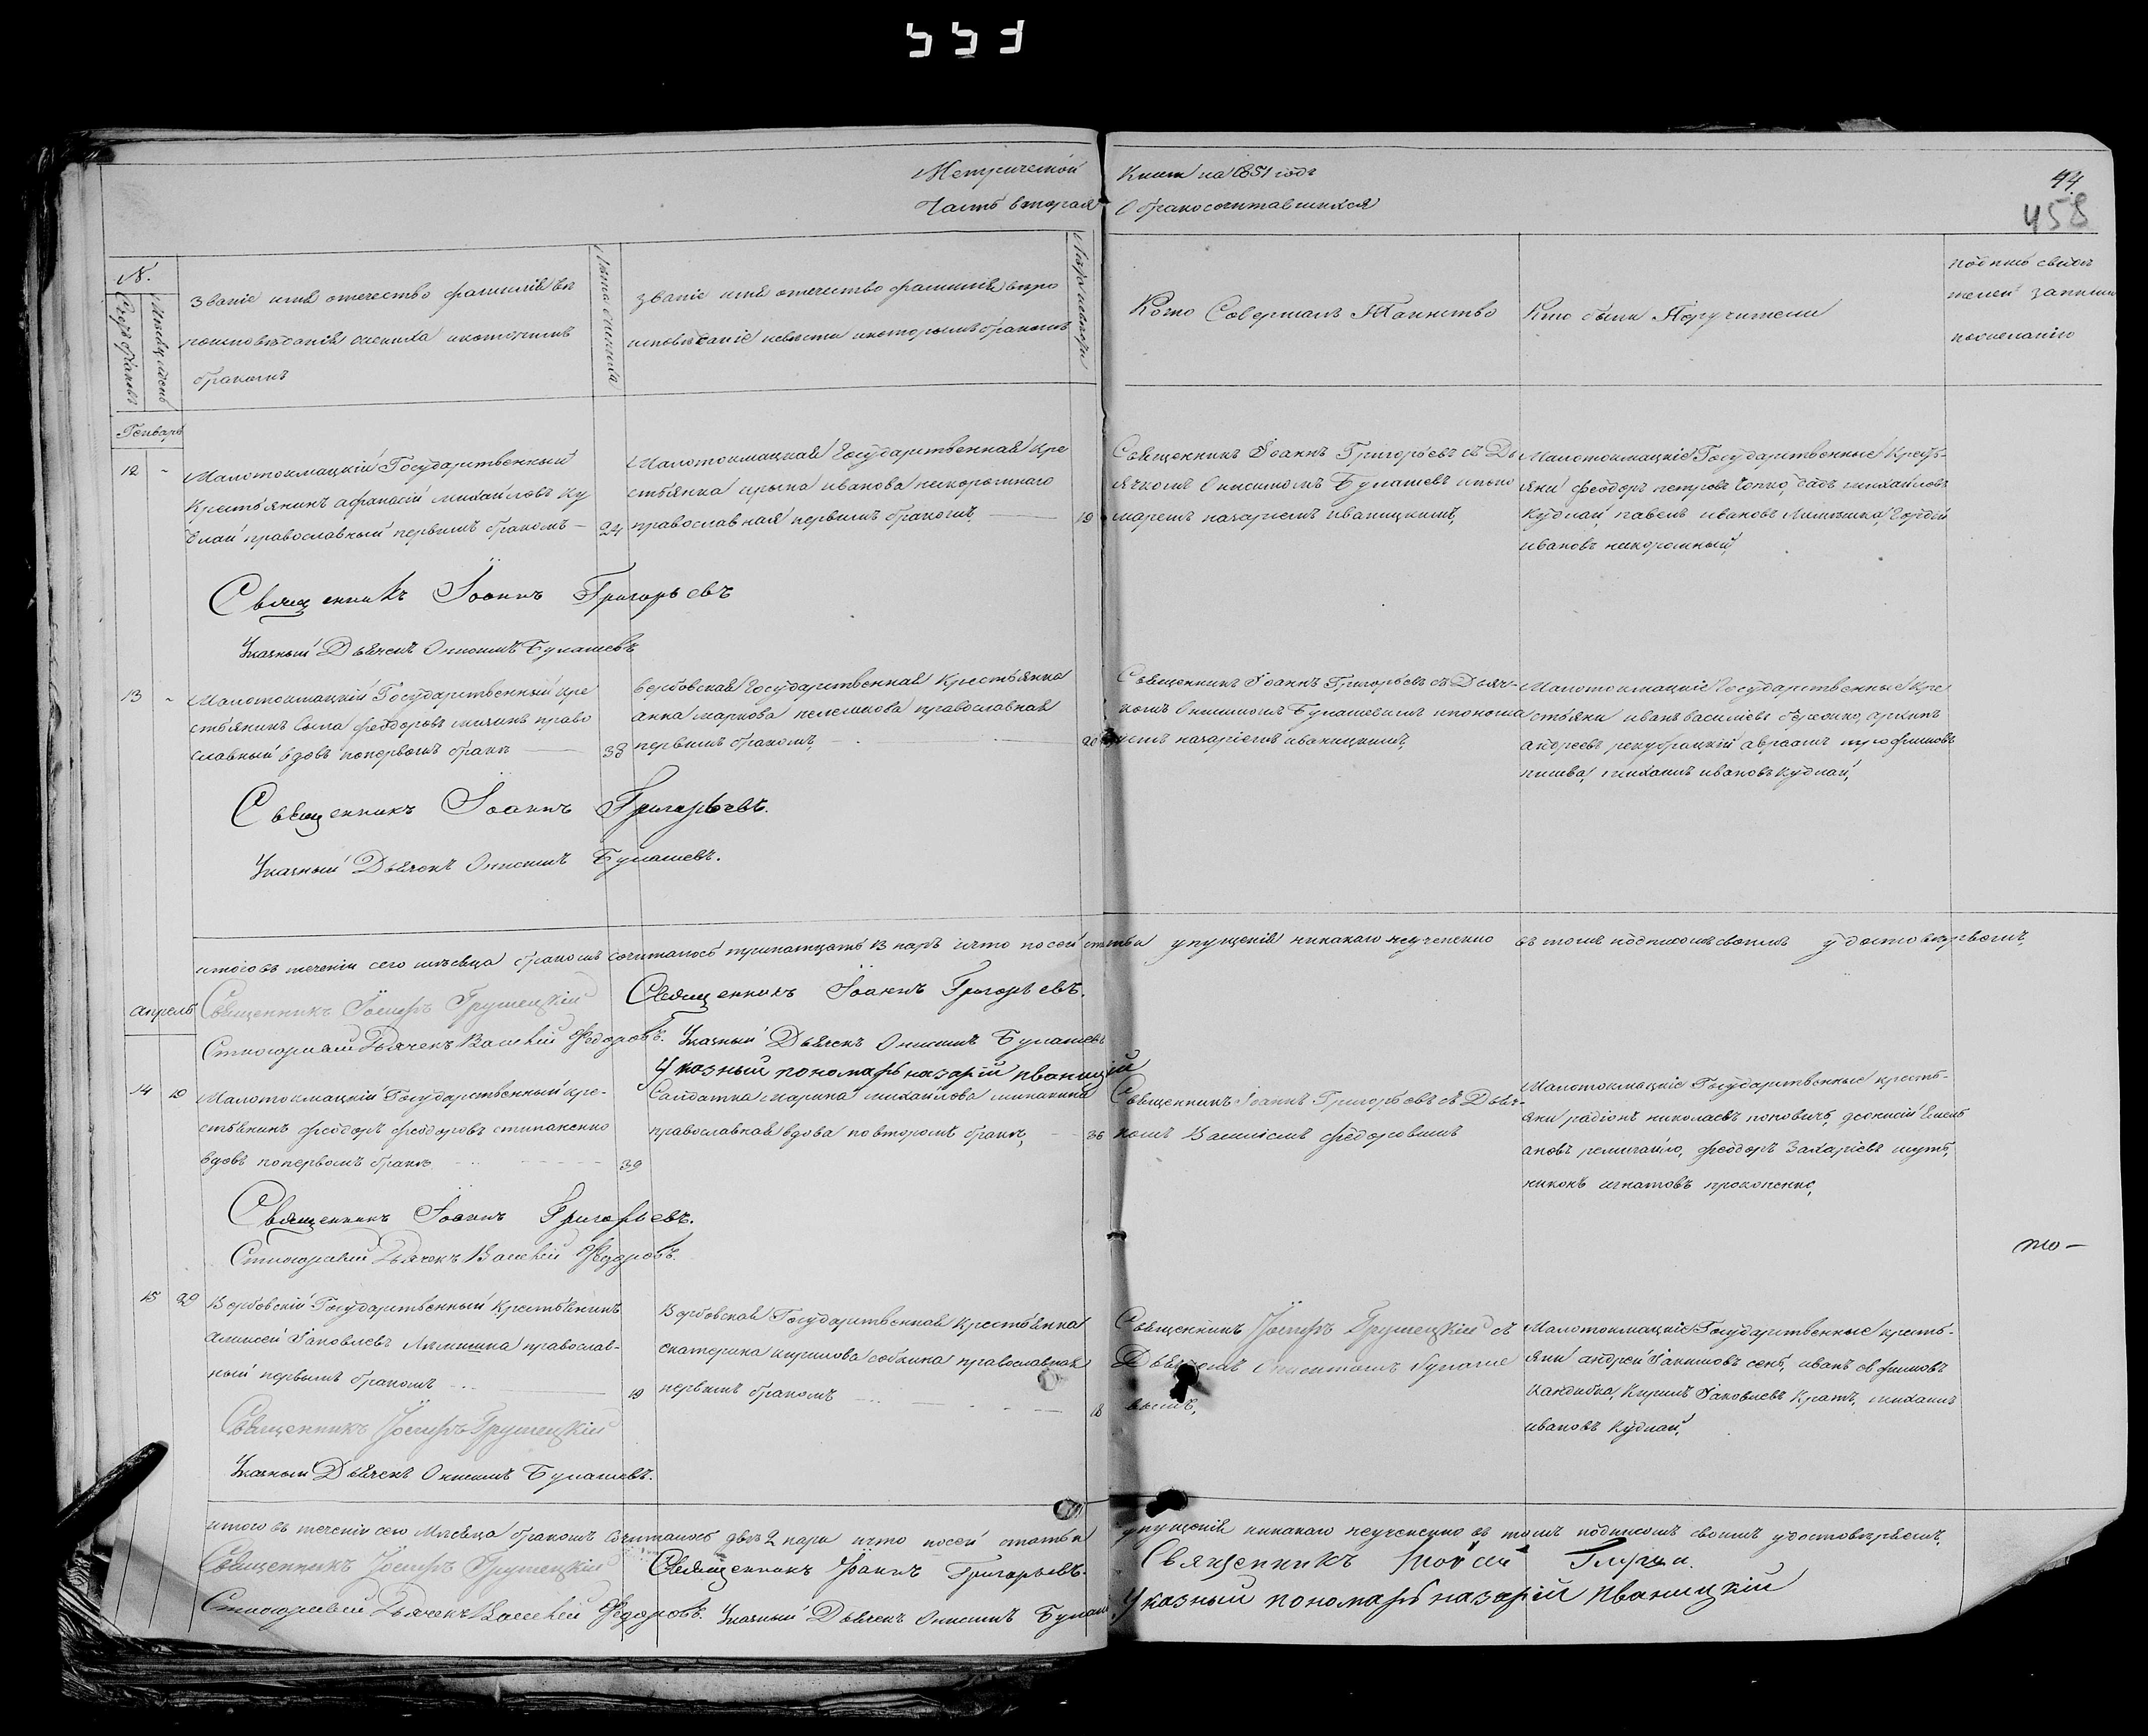 Метрической Книги на 1851 годъ
Часть вторая О бракосочитавшихся
44
458
№.
Счетъ браковъ
Месяцъ и день
Званіе имя отечество фамилія вѣ
роисповѣданія жениха и которымъ
бракомъ
Лѣта жениха
Званіе имя отечество фамилія вѣро
исповѣданіе невѣсты и которымъ бракомъ
Лѣта невѣсты
Кто Совершалъ Таинство
Кто были Поручители
подпись свидѣ
телей записи
по желанію
Генварь
12 -
Малотокмацкій Государственный
Крестьянинъ афанасій михайловъ Ку
длай православный первымъ бракомъ - 24
Малотокмацкая Государственная Кре
стьянка ирына иванова некоромнаго
православная первымъ бракомъ, 19
Священникъ Іоаннъ Григорьевъ съ Дь
ячкомъ Онисимомъ Булашевъ и поно
маремъ назаріемъ иваницкимъ,
Малотокмацкіе Государственные Кресть-
яни феодоръ петровъ михайловъ
Кудлай, павелъ ивановъ Лямшина, Гордѣй
ивановъ некоромный,
Священникъ Іоаннъ Григорьевъ
Указный Дьячекъ Онисимъ Булашевъ
13 -
Малотокмацкій Государственный кре
стьянинъ Сыла феодоровъ право
славный вдовъ по первомъ бракѣ 38
Вербовская Государственная Крестьянка
анна маркова пелешкова православная
первымъ бракомъ, 20
Священникъ Іоаннъ Григорьевъ съ Дьяч-
комъ Онисимомъ Булашевымъ и понома
ремъ назаріемъ иваницкимъ,
Малотокмацкіе Государственные Кре
стьяни иванъ василіевъ архипъ
андреевъ авраамъ трофимовъ
михаилъ ивановъ Кудлай,
Священникъ Іоаннъ Григорьевъ.
Указный Дьячекъ Онисимъ Булашевъ.
итого въ теченіи сего мѣсяца бракомъ сочиталось тринатцать 13 паръ и что по сей статьи упущенія никакаго неучененно въ томъ подписомъ своимъ удостовѣряемъ,
Священникъ Іосифъ Грушецкій Священникъ Іоаннъ Григорьевъ.
апрель
Стихорный Дьячекъ Василій Федоровъ. Указный Дьячекъ Онисимъ Булашевъ
Указный пономарь назарій иваницкій
14 19
Малотокмацкій Государственный кре-
стьянинъ феодоръ феодоровъ степаненко
вдовъ по первомъ бракѣ 39
Салдатка марина михайлова
православная вдова по второмъ бракѣ, 36
Священникъ Іоаннъ Григорьевъ съ Дьяч-
комъ Василіемъ Федоровымъ
Малотокмацкіе Государственные кресть-
яни радіонъ николаевъ поповичъ,
феодоръ Захаріевъ шутъ,
никонъ игнатовъ прокопенко,
Священникъ Іоаннъ Григорьевъ.
Стихорный Дьячекъ Василій Федоровъ.
15 29
Вербовскій Государственный Крестьянинъ
алексей Іаковлевъ Лямшина православ-
ный первымъ бракомъ 19
Вербовская Государственная Крестьянка
екатерина кирилова собкина православная
первымъ бракомъ 18
Священникъ Іосифъ Грушецкій съ
Дьячкомъ Онисимомъ Булаше
вымъ,
Малотокмацкіе Государственные кресть-
яни андрей Іакимовъ сенъ, иванъ ефимовъ
Кандыба, Кирилъ Іаковлевъ Кратъ, михаилъ
ивановъ Кудлай,
Священникъ Іосифъ Грушецкій
Указный Дьячекъ Онисимъ Булашевъ.
итого въ теченіи сего Мѣсяца бракомъ сочиталось две 2 пары и что по сей статьи упущенія никакаго неучененно въ томъ подписомъ своимъ удостовѣряемъ,
Священникъ Іосифъ Грушецкій Священникъ Іоаннъ Григорьевъ. Священникъ
Стихорный Дьячекъ Василій Федоровъ. Указный Дьячекъ Онисимъ Булаш Указный пономарь назарій иваницкій